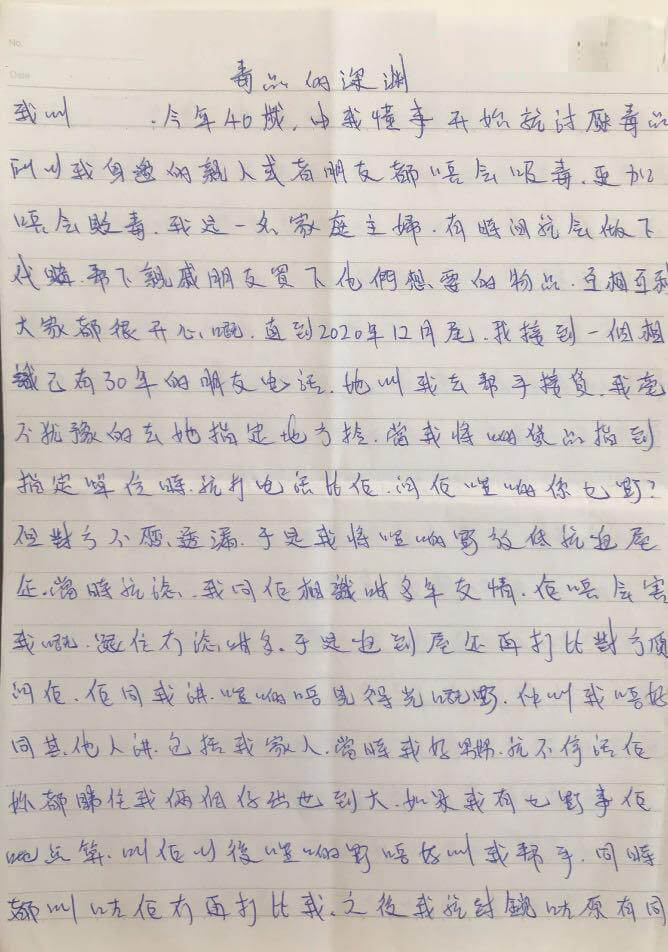 No.
Date
毒品的深渊
我叫 .今年40歲，由我懂事开始就討厭毒品
所以我身邊的親人或者朋友都唔会吸毒.更加
唔会販毒.我是一名家庭主婦.有時间就会做下
代購.帮下親戚朋友買下他們想要的物品.互相互利
大家都很开心嘅.直到2020年12月尾.我接到一個相
識已有30年的朋友电话.她叫我去帮手接貨.我毫
不犹豫的去她指定地方拎.當我将啲貨品拎到
指定单位時.就打电话比佢.问佢呢啲係乜野?
但對方不愿透漏.于是我将呢啲野放低就返屋
企.當時就諗.我同佢相識咁多年友情.佢唔会害
我嘅.跟住冇諗咁多.于是返到屋企再打比對方質
问佢.佢同我讲.呢啲唔見得光嘅野.仲叫我唔好
同其他人讲.包括我家人.當時我好嬲.就不停话佢
妳都睇住我俩個仔出世到大.如果我有乜野事佢
哋点算.叫佢以後呢啲野唔好叫我帮手.同時
都叫咗佢冇再打比我.之後我就封鎖咗原有同